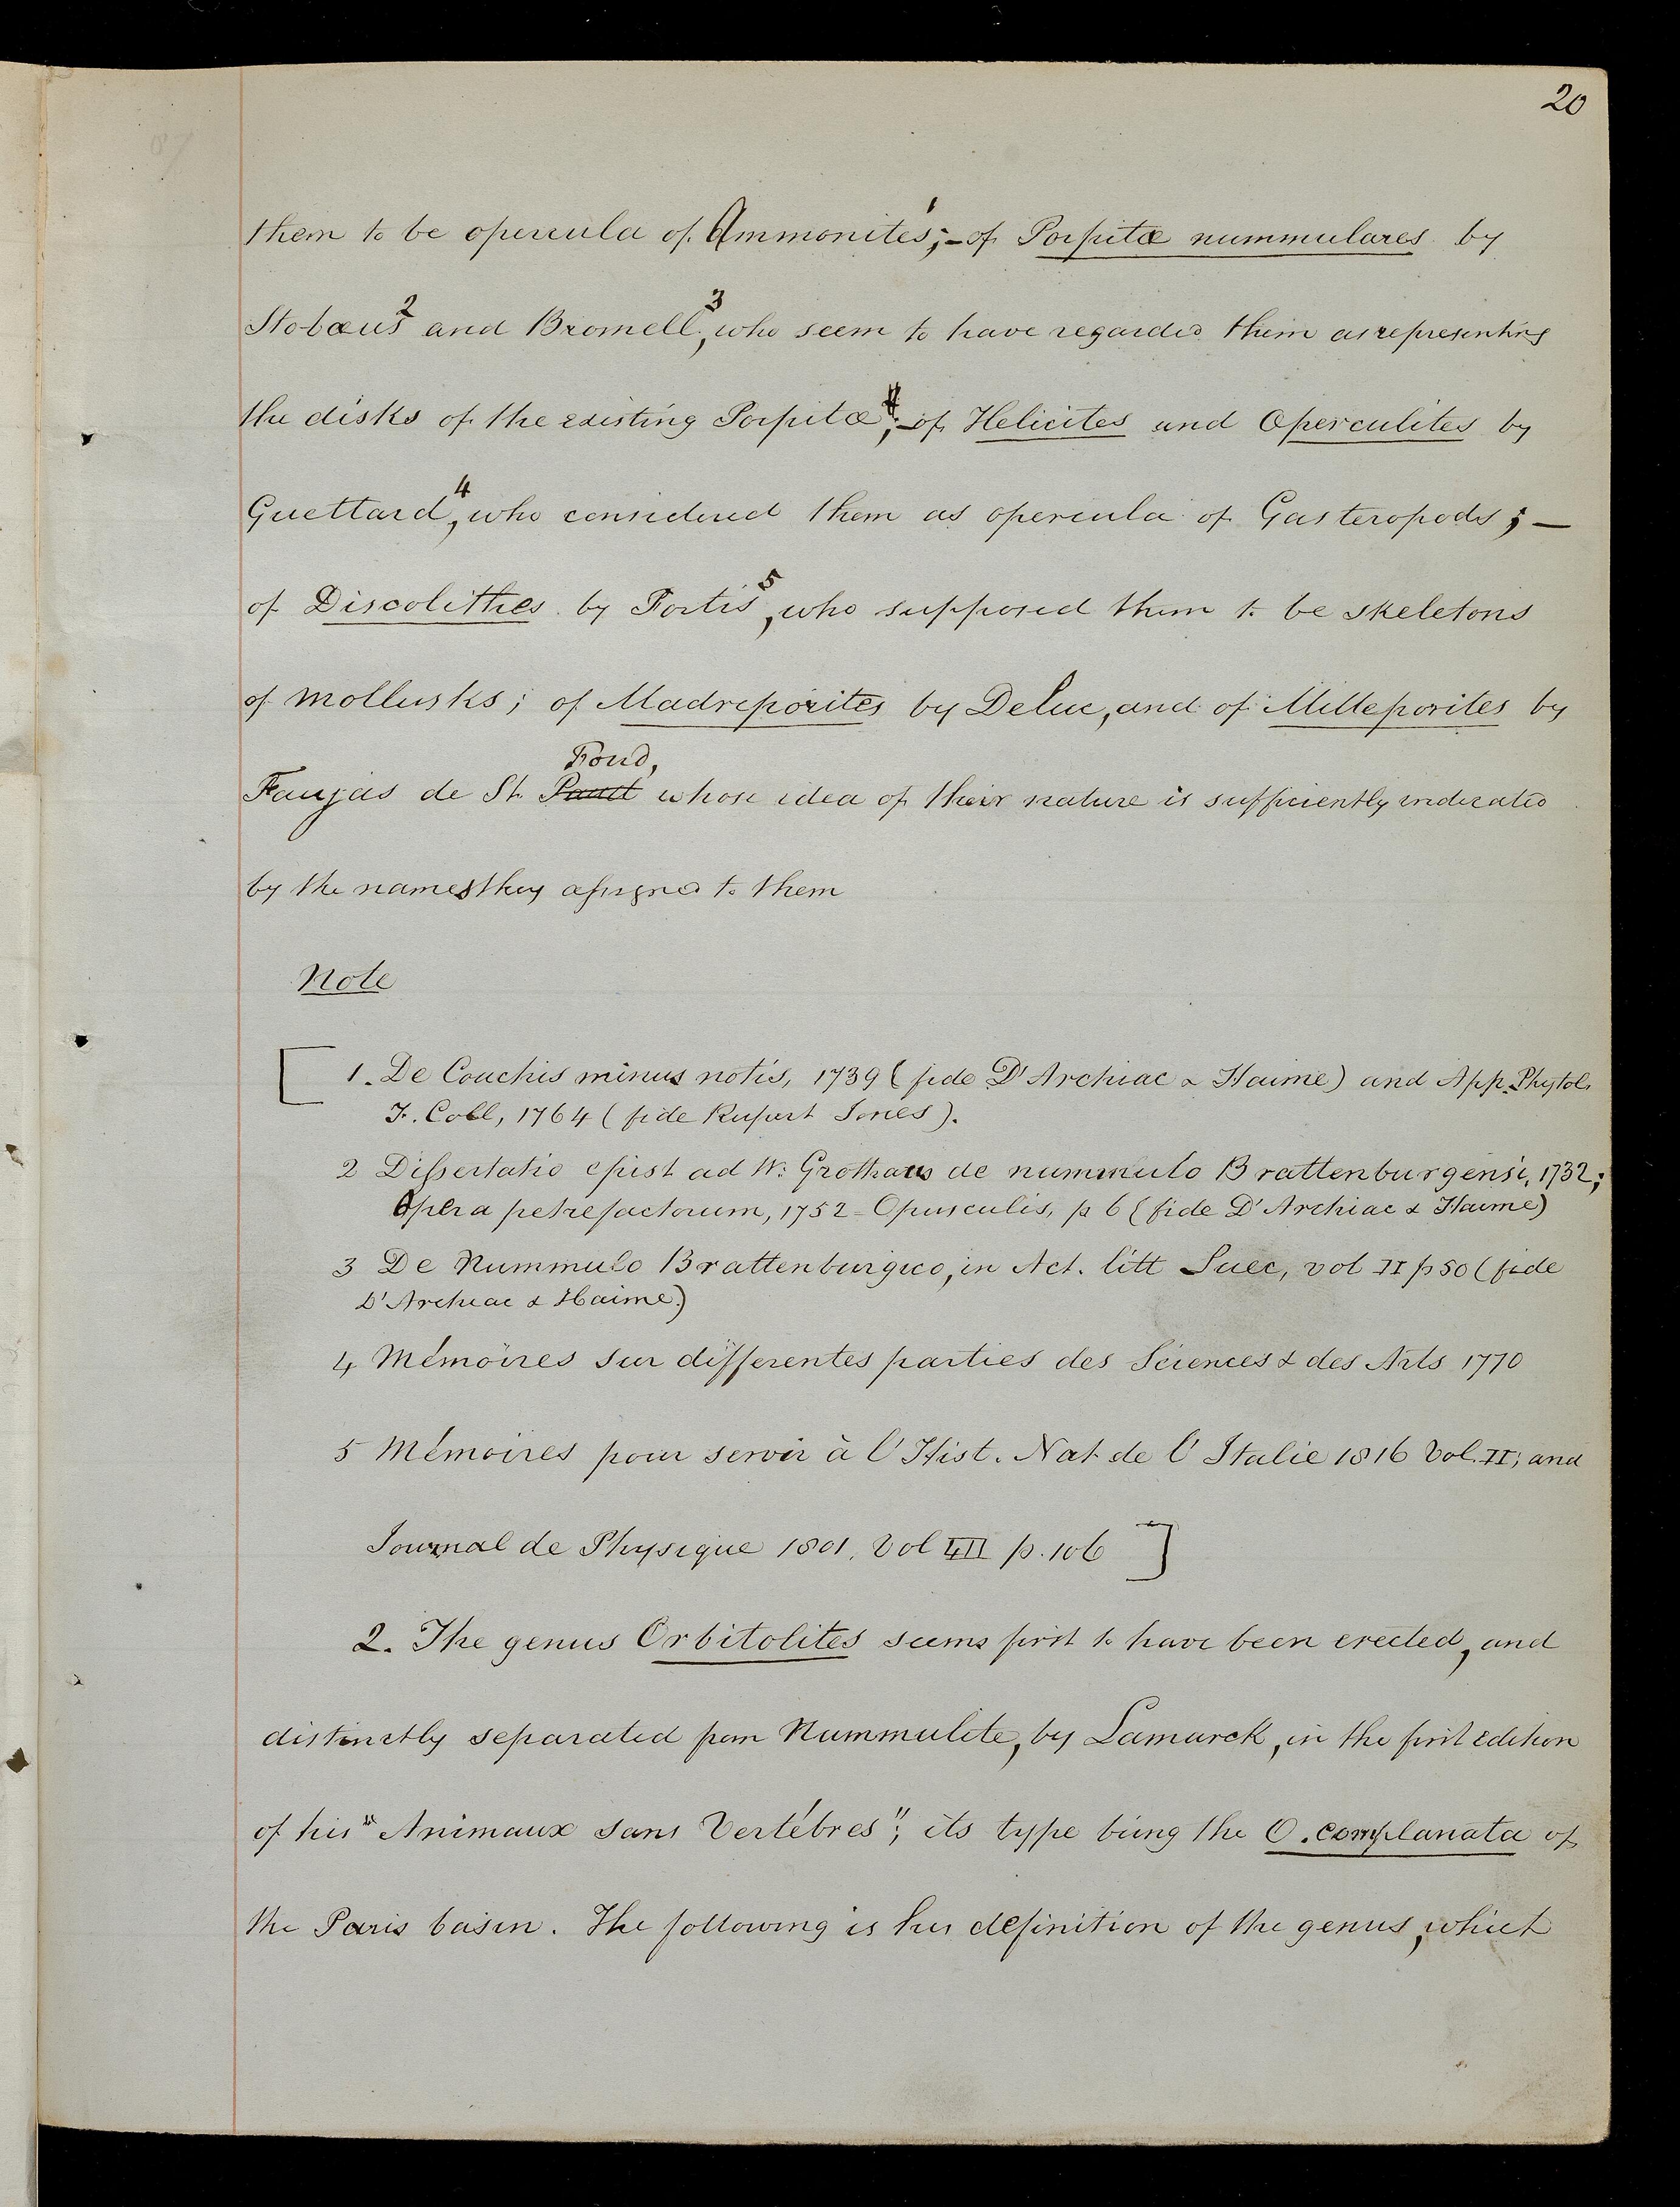 20
them to be opercula of Ammonites¹;—of Porpitæ nummulares by
Stobæus² and Bromell³, who seem to have regarded them as representing
the disks of the existing Porpitæ;—of Helicites and Operculites by
Guettard⁴, who considered them as opercula of Gasteropods;—
of Discolithes by Fortis⁵, who supposed them to be skeletons
of mollusks; of Madreporites by DeLuc, and of Milleporites by
Fond,
Faujas de St. whose idea of their nature is sufficiently indicated
by the names they assigned to them
Note
[ 1. De Conchis minus notis, 1739 (fide D'Archiac & Haime) and App. Phytol.
F. Coll, 1764 (fide Rupert Jones).
2 Dissertatio epist ad W: Grothaus de nummulo Brattenburgensi, 1732;
Opera petrefactorum, 1752 - Opusculis, p 6 (fide D'Archiac & Haime)
3 De Nummulo Brattenburgico, in Act. litt Suec, vol II p 50 (fide
D'Archiac & Haime.)
4 Mémoires sur differentes parties des Sciences & des Arts 1770
5 Mémoires pour servir à l'Hist. Nat de l'Italie 1816 Vol. II; and
Journal de Physique 1801. Vol LII p. 106 ]
2. The genus Orbitolites seems first to have been erected, and
distinctly separated from Nummulite, by Lamarck, in the first edition
of his "Animaux sans Vertébres"; its type being the O. complanata of
the Paris basin. The following is his definition of the genus, which